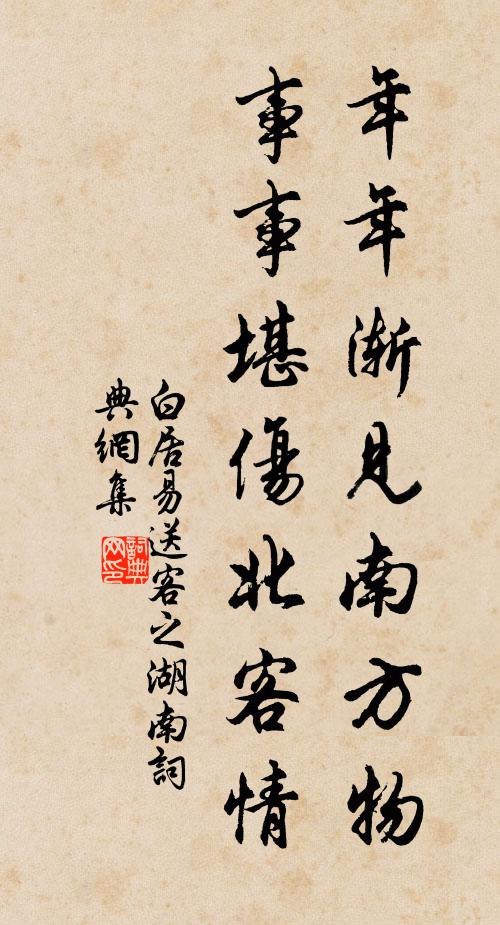 年年漸見南方物
事事堪傷北客情
白居易送客之湖南詞
典網集
詞典
网印